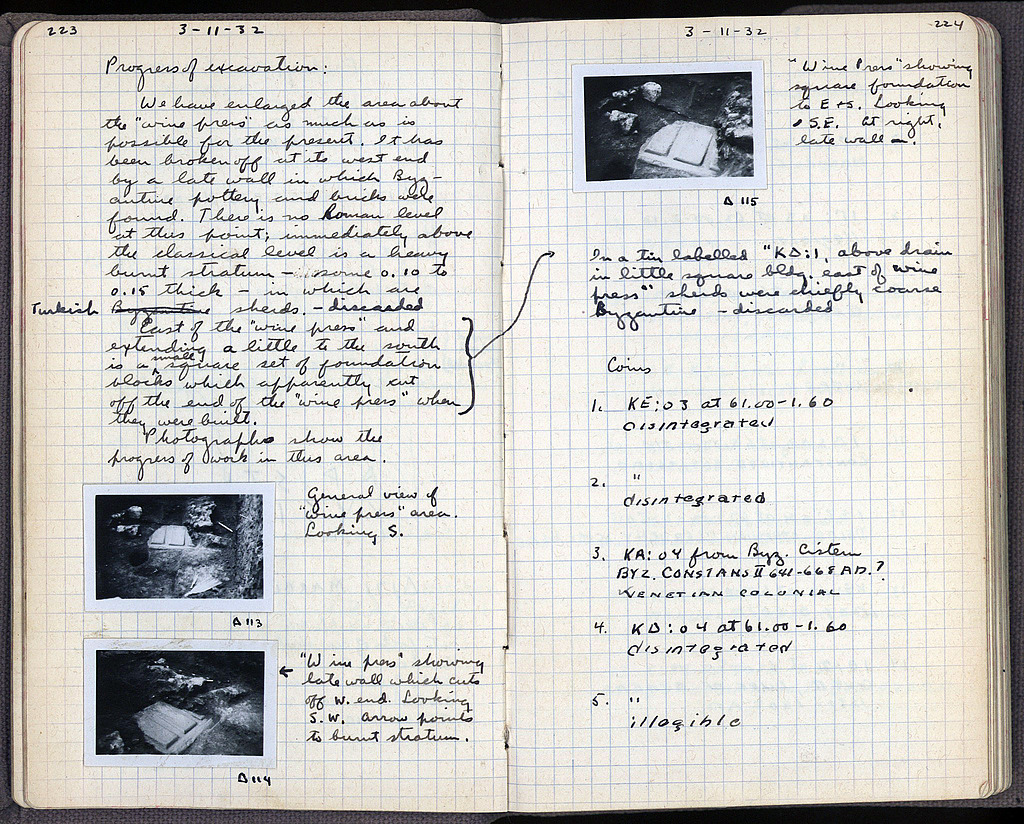 223
3-11-32
Progress of excavation:
We have enlarged the area about
the "wine press" as much as is
possible for the present. It has
been broken off at its west end
by a late wall in which Byz-
antine pottery and bricks were
found. There is no Roman level
at this point; immediately above
the classical level is a heavy
burnt stratum - some 0.10 to
0.15 thick - in which are
Turkish Byzantine sherds. - discarded
East of the "wine press" and
extending a little to the south
is a small square set of foundation
blocks which apparently cut
off the end of the "wine press" when
they were built.
Photographs show the
progress of work in this area.
General view of
"wine press" area.
Looking S.
Δ113
"Wine press" showing
late wall which cuts
off W. end. Looking
S.W. arrow points
to burnt stratum.
Δ114
224
3-11-32
"Wine Press" showing
square foundation
to E+S. Looking
S.E. At right,
late wall.
Δ115
In a tin labelled "KD:1, above drain
in little square bldg. east of wine
press" sherds were chiefly coarse
Byzantine - discarded
Coins
1. KE:03 at 61.00-1.60
disintegrated
2. "
disintegrated
3. KA:04 from Byz. Cistern
BYZ. CONSTANS II 641-668 AD.?
VENETIAN COLONIAL
4. KD:04 at 61.00-1.60
disintegrated
5. "
illegible